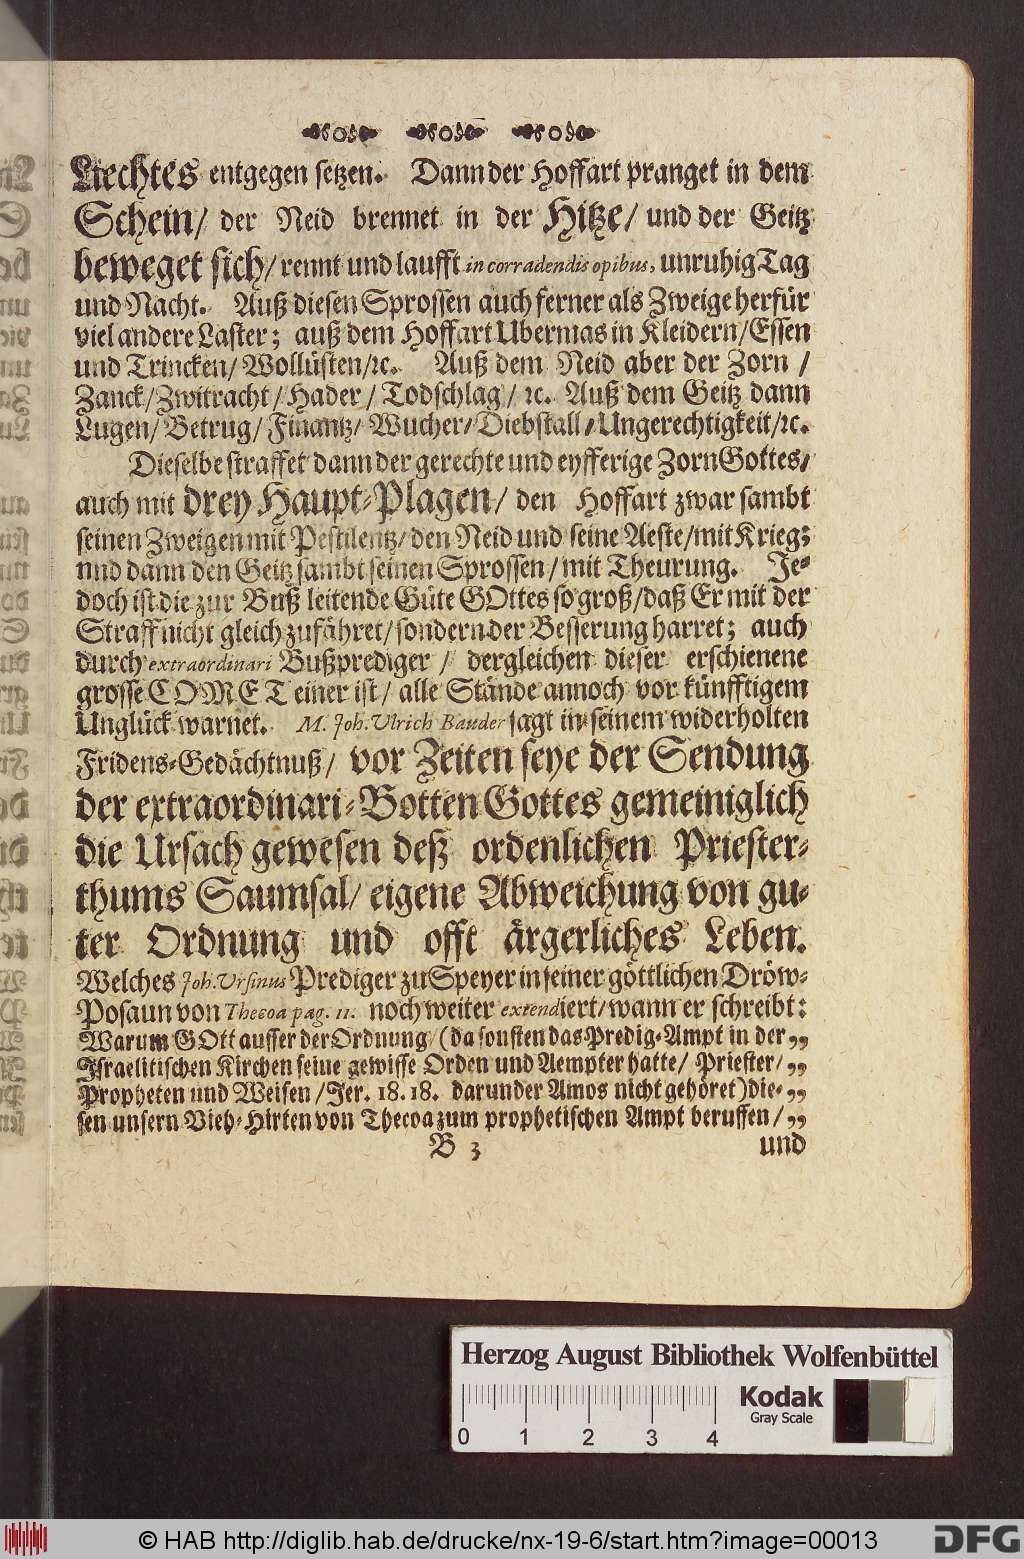 Liechtes entgegen setzen. Dann der Hoffart pranget in dem
Schein/ der Neid brennet in der Hitze/ und der Geitz
beweget sich/ rennt und laufft in corradendis opibus, unruhig Tag
und Nacht. Auß diesen Sprossen auch ferner als Zweige herfür
viel andere Laster; auß dem Hoffart Ubermas in Kleidern/ Essen
und Trincken/ Wollüsten/ ꝛc. Auß dem Neid aber der Zorn /
Zanck/ Zwitracht / Hader / Todschlag / ꝛc. Auß dem Geitz dann
Lugen/ Betrug/ Finantz/ Wucher/ Diebstall/ Ungerechtigkeit/ ꝛc.
Dieselbe straffet dann der gerechte und eyfferige Zorn Gottes/
auch mit drey Haupt-Plagen/ den Hoffart zwar sambt
seinen Zweigen mit Pestilentz/ den Neid und seine Aeste/ mit Krieg;
nnd dann den Geitz sambt seinen Sprossen / mit Theurung. Je-
doch ist die zur Buß leitende Güte GOttes so groß/ daß Er mit der
Straff nicht gleich zufähret/ sondern der Besserung harret; auch
durch extraordinari Bußprediger / dergleichen dieser erschienene
grosse COMET einer ist/ alle Stände annoch vor künfftigem
Unglück warnet. M. Joh. Ulrich Bauder sagt in seinem widerholten
Fridens-Gedächtnuß/ vor Zeiten seye der Sendung
der extraordinari-Botten Gottes gemeiniglich
die Ursach gewesen deß ordenlichen Priester-
thums Saumsal/ eigene Abweichung von gu-
ter Ordnung und offt ärgerliches Leben.
Welches Joh. Ursinus Prediger zu Speyer in seiner göttlichen Dröw-
Posaun von Thecoa pag. 11. noch weiter extendiert/ wann er schreibt:
Warum GOtt ausser der Ordnung (da sonsten das Predig-Ampt in der „
Israelitischen Kirchen seine gewisse Orden und Aempter hatte/ Priester/ „
Propheten und Weisen / Jer. 18. 18. darunder Amos nicht gehöret) die- „
sen unsern Vieh-Hirten von Thecoa zum prophetischen Ampt beruffen / „
B 3 und
Herzog August Bibliothek Wolfenbüttel
Kodak
Gray Scale
0 1 2 3 4
© HAB http://diglib.hab.de/drucke/nx-19-6/start.htm?image=00013
DFG